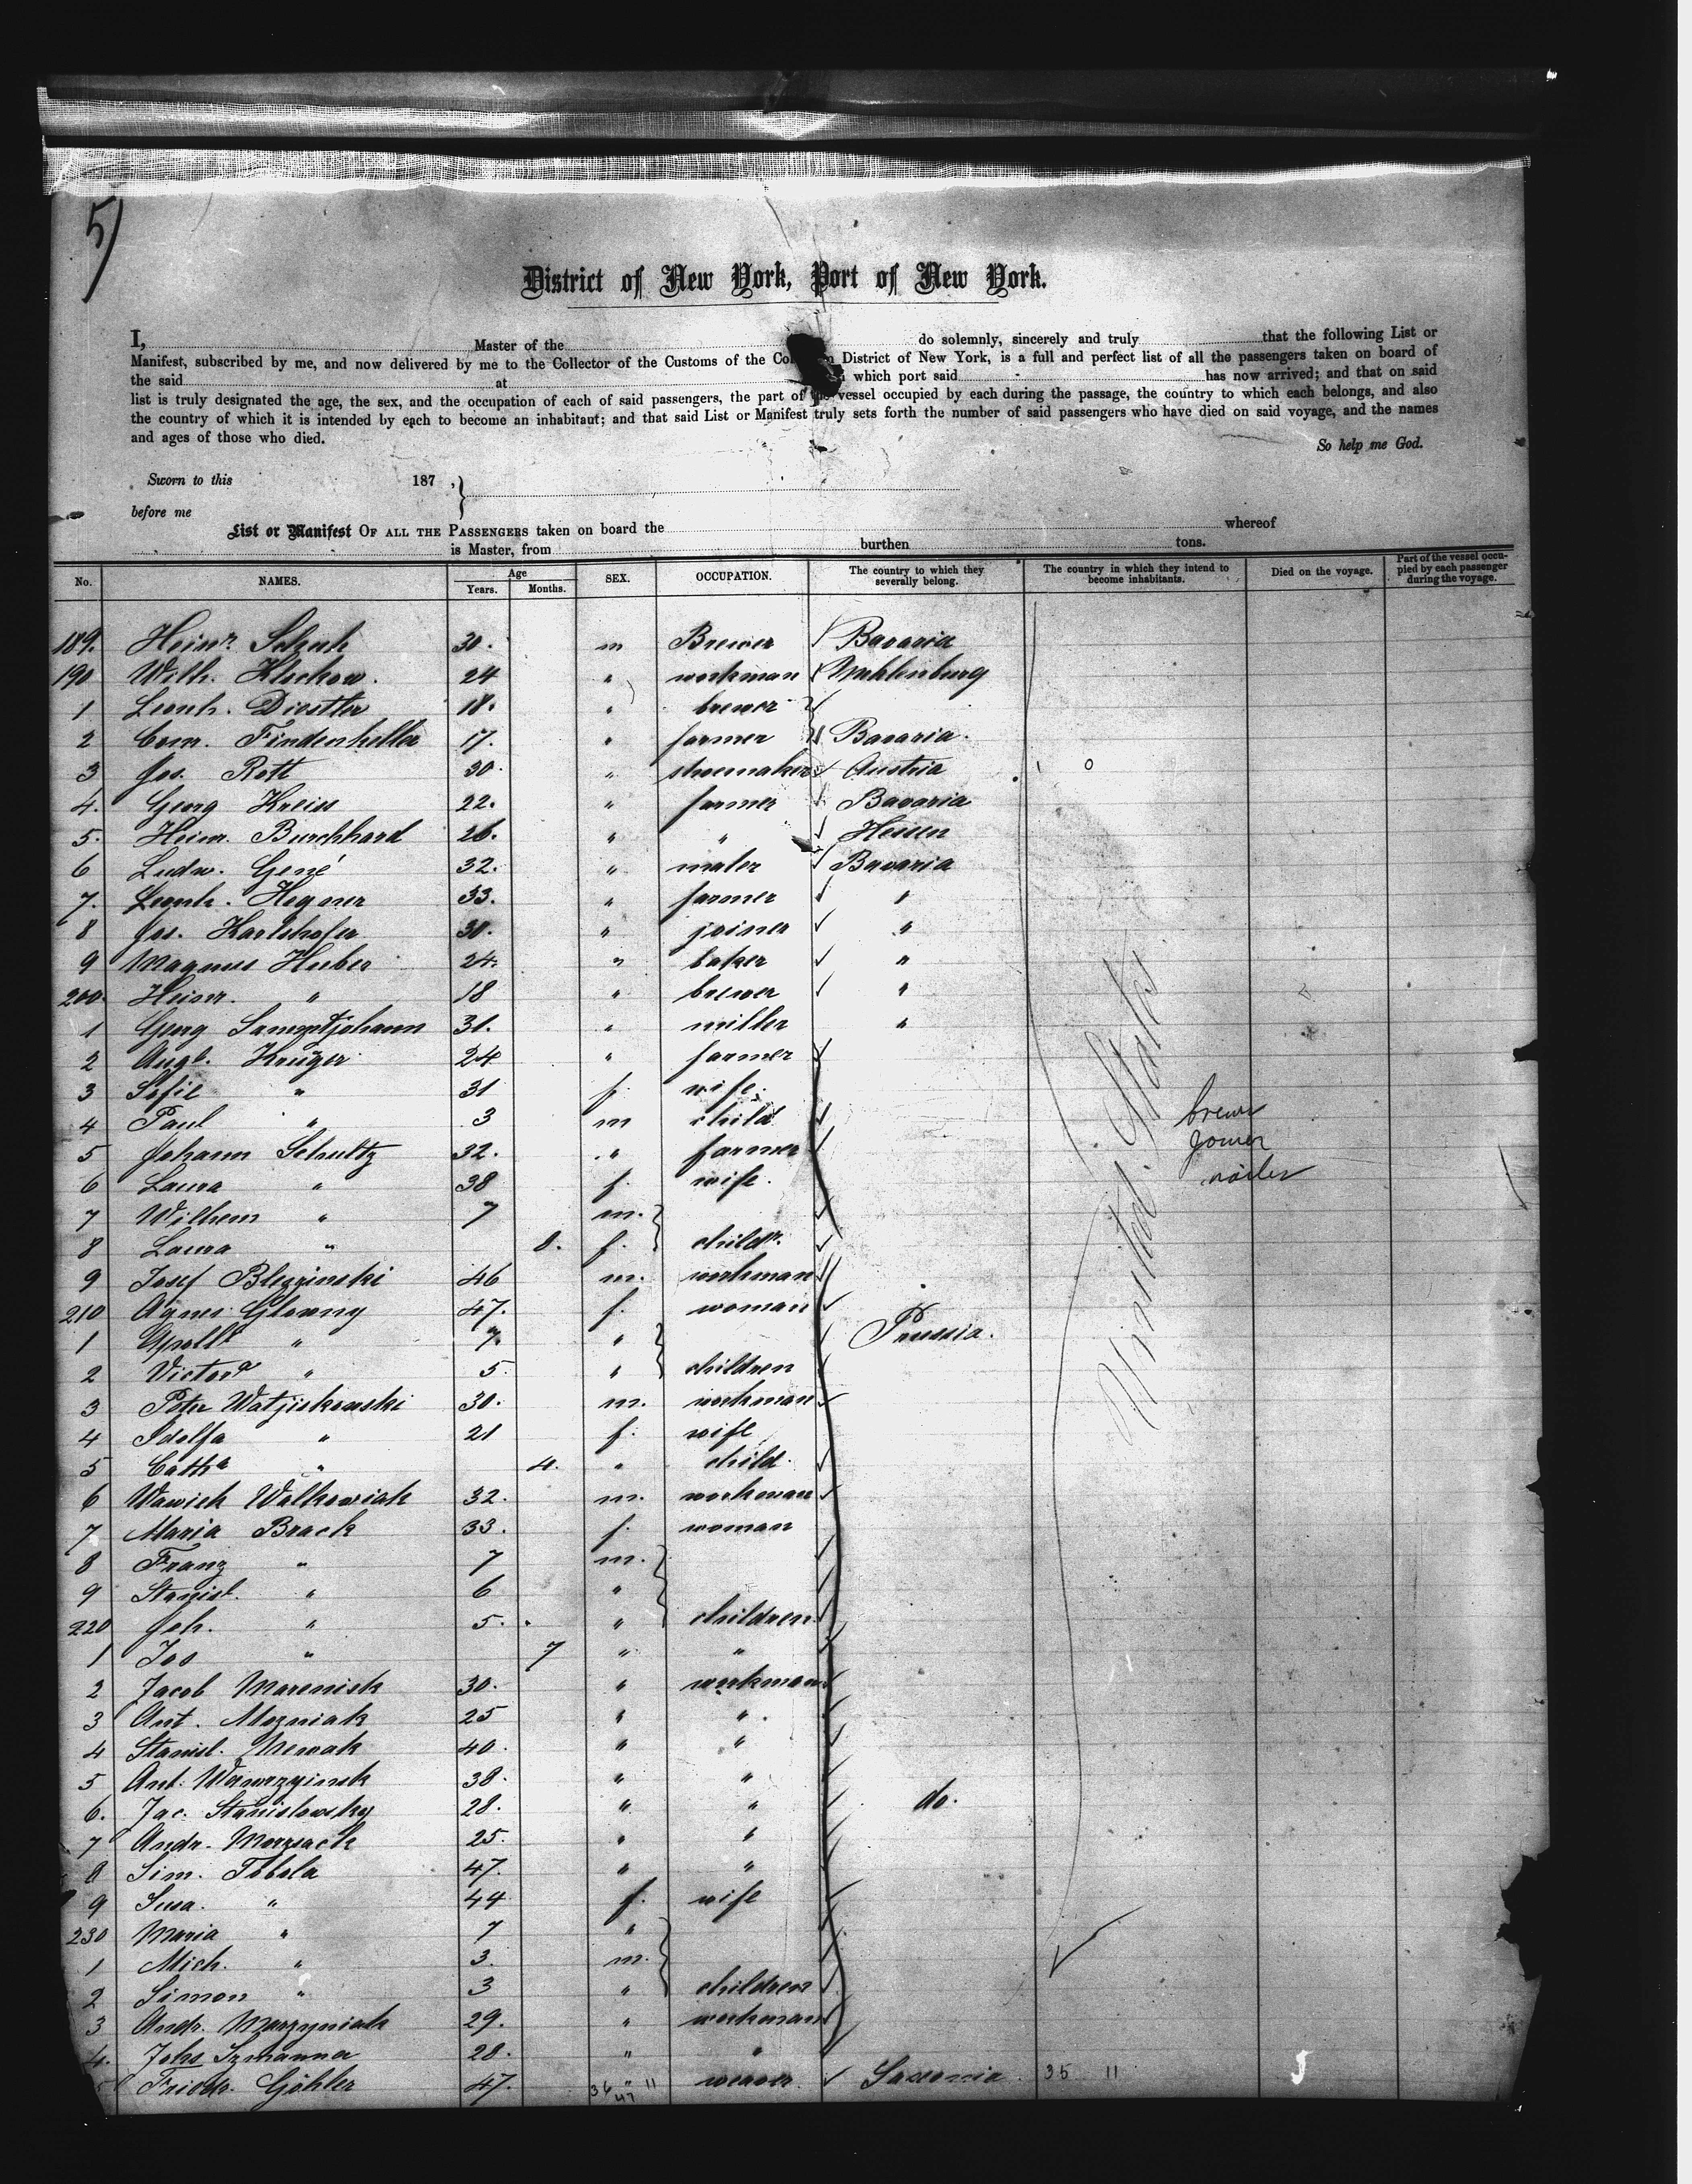 5)
District of New York, Port of New York.
I, Master of the do solemnly, sincerely and truly that the following List or
Manifest, subscribed by me, and now delivered by me to the Collector of the Customs of the District of New York, is a full and perfect list of all the passengers taken on board of
the said at which port said has now arrived; and that on said
list is truly designated the age, the sex, and the occupation of each of said passengers, the part of the vessel occupied by each during the passage, the country to which each belongs, and also
the country of which it is intended by each to become an inhabitant; and that said List or Manifest truly sets forth the number of said passengers who have died on said voyage, and the names
and ages of those who died. So help me God.
Sworn to this 187 ,
before me
List or Manifest OF ALL THE PASSENGERS taken on board the whereof
is Master, from burthen tons.
No. NAMES. Age Years. Months. SEX. OCCUPATION. The country to which they severally belong. The country in which they intend to become inhabitants. Died on the voyage. Part of the vessel occupied by each passenger during the voyage.
189. Heinr. 30. m Brewer Bavaria
190 Wilh. Klockow. 24 " workman
1 Leonh. Distler 18. " brewer
2 Findenkeller 17. " farmer Bavaria.
3 Jos. Rott 30. " shoemaker Austria
4. Georg Kreiss 22. " farmer Bavaria
5. Heinr. Burchhard 26. " " Hessen
6 Ludw. Gené 32. " Bavaria
7. Leonh. Hagner 33. " farmer "
8 Jos. Karlshofer 30. " joiner "
9 Magnus Huber 24. " baker "
200. Heinr. " 18 " brewer "
1 Georg 31. " miller "
2 Augt. Krüger 24 " farmer
3 Sofie " 31 f. wife.
4 Paul " 3 m child
5 Johann Schultz 32. " farmer
6 Laura " 38 f. wife.
7 Wilhem " 7 m.
8 Laura " 8. f. childr.
9 Josef 46 m. workman
210 Agnes Glowny 47. f. woman
1 " 7. " Prussia.
2 Victora " 5. " children
3 Peter Watjiskowski 30. m. workman
4 Idolfa " 21 f. wife
5 Catha " 4. " child.
6 Walkowiak 32. m. workman
7 Maria Brack 33. f. woman
8 Franz " 7 m.
9 Stanisl. " 6 "
220 Joh. " 5. " children
1 Jos " 7 " "
2 Jacob 30. " workman
3 Ant. Mozniak 25 " "
4 Stanisl. Nowak 40. " "
5 Ant. 38. " "
6. Jac. Stanislowsky 28. " " do.
7 Andr. 25. " "
8 Sim. Tobola 47. " "
9 Susa. " 44 f. wife
230 Maria " 7 "
1 Mich. " 3. m.
2 Simon " 3 " children
3 Andr. Marzyniak 29. " workman
4. Johs Szmanna 28. " "
Friedr. Göhler 47. " weaver Saxonia 35 11
United States
brewer
joiner